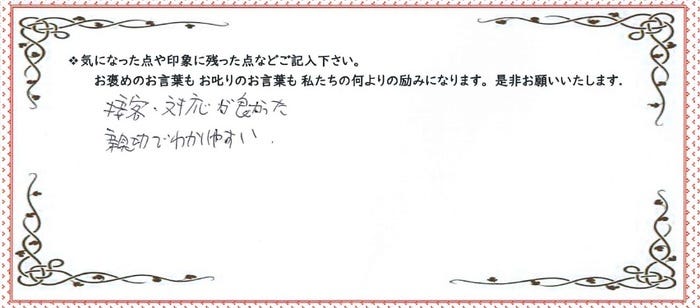 ❖気になった点や印象に残った点などご記入下さい。
お褒めのお言葉も お叱りのお言葉も 私たちの何よりの励みになります。是非お願いいたします.
接客・対応が良かった
親切でわかりやすい.